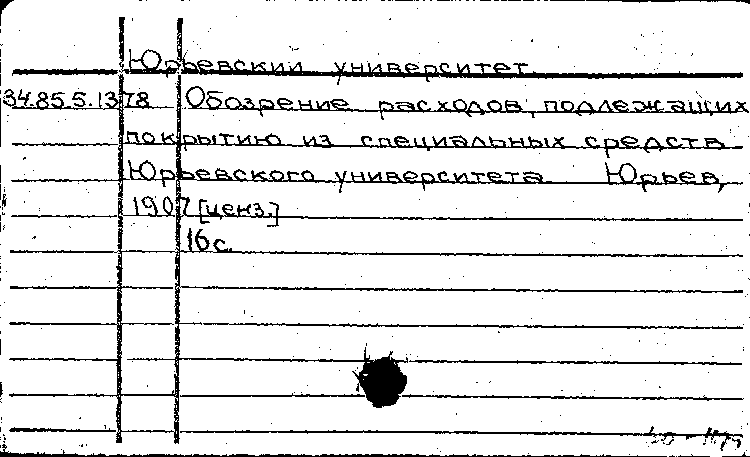 Юрьевский университет.
34.85.5.1378 Обозрение расходов, подлежащих
покрытию из специальных средств
Юрьевского университета Юрьев,
1907 [ценз.]
16 с.